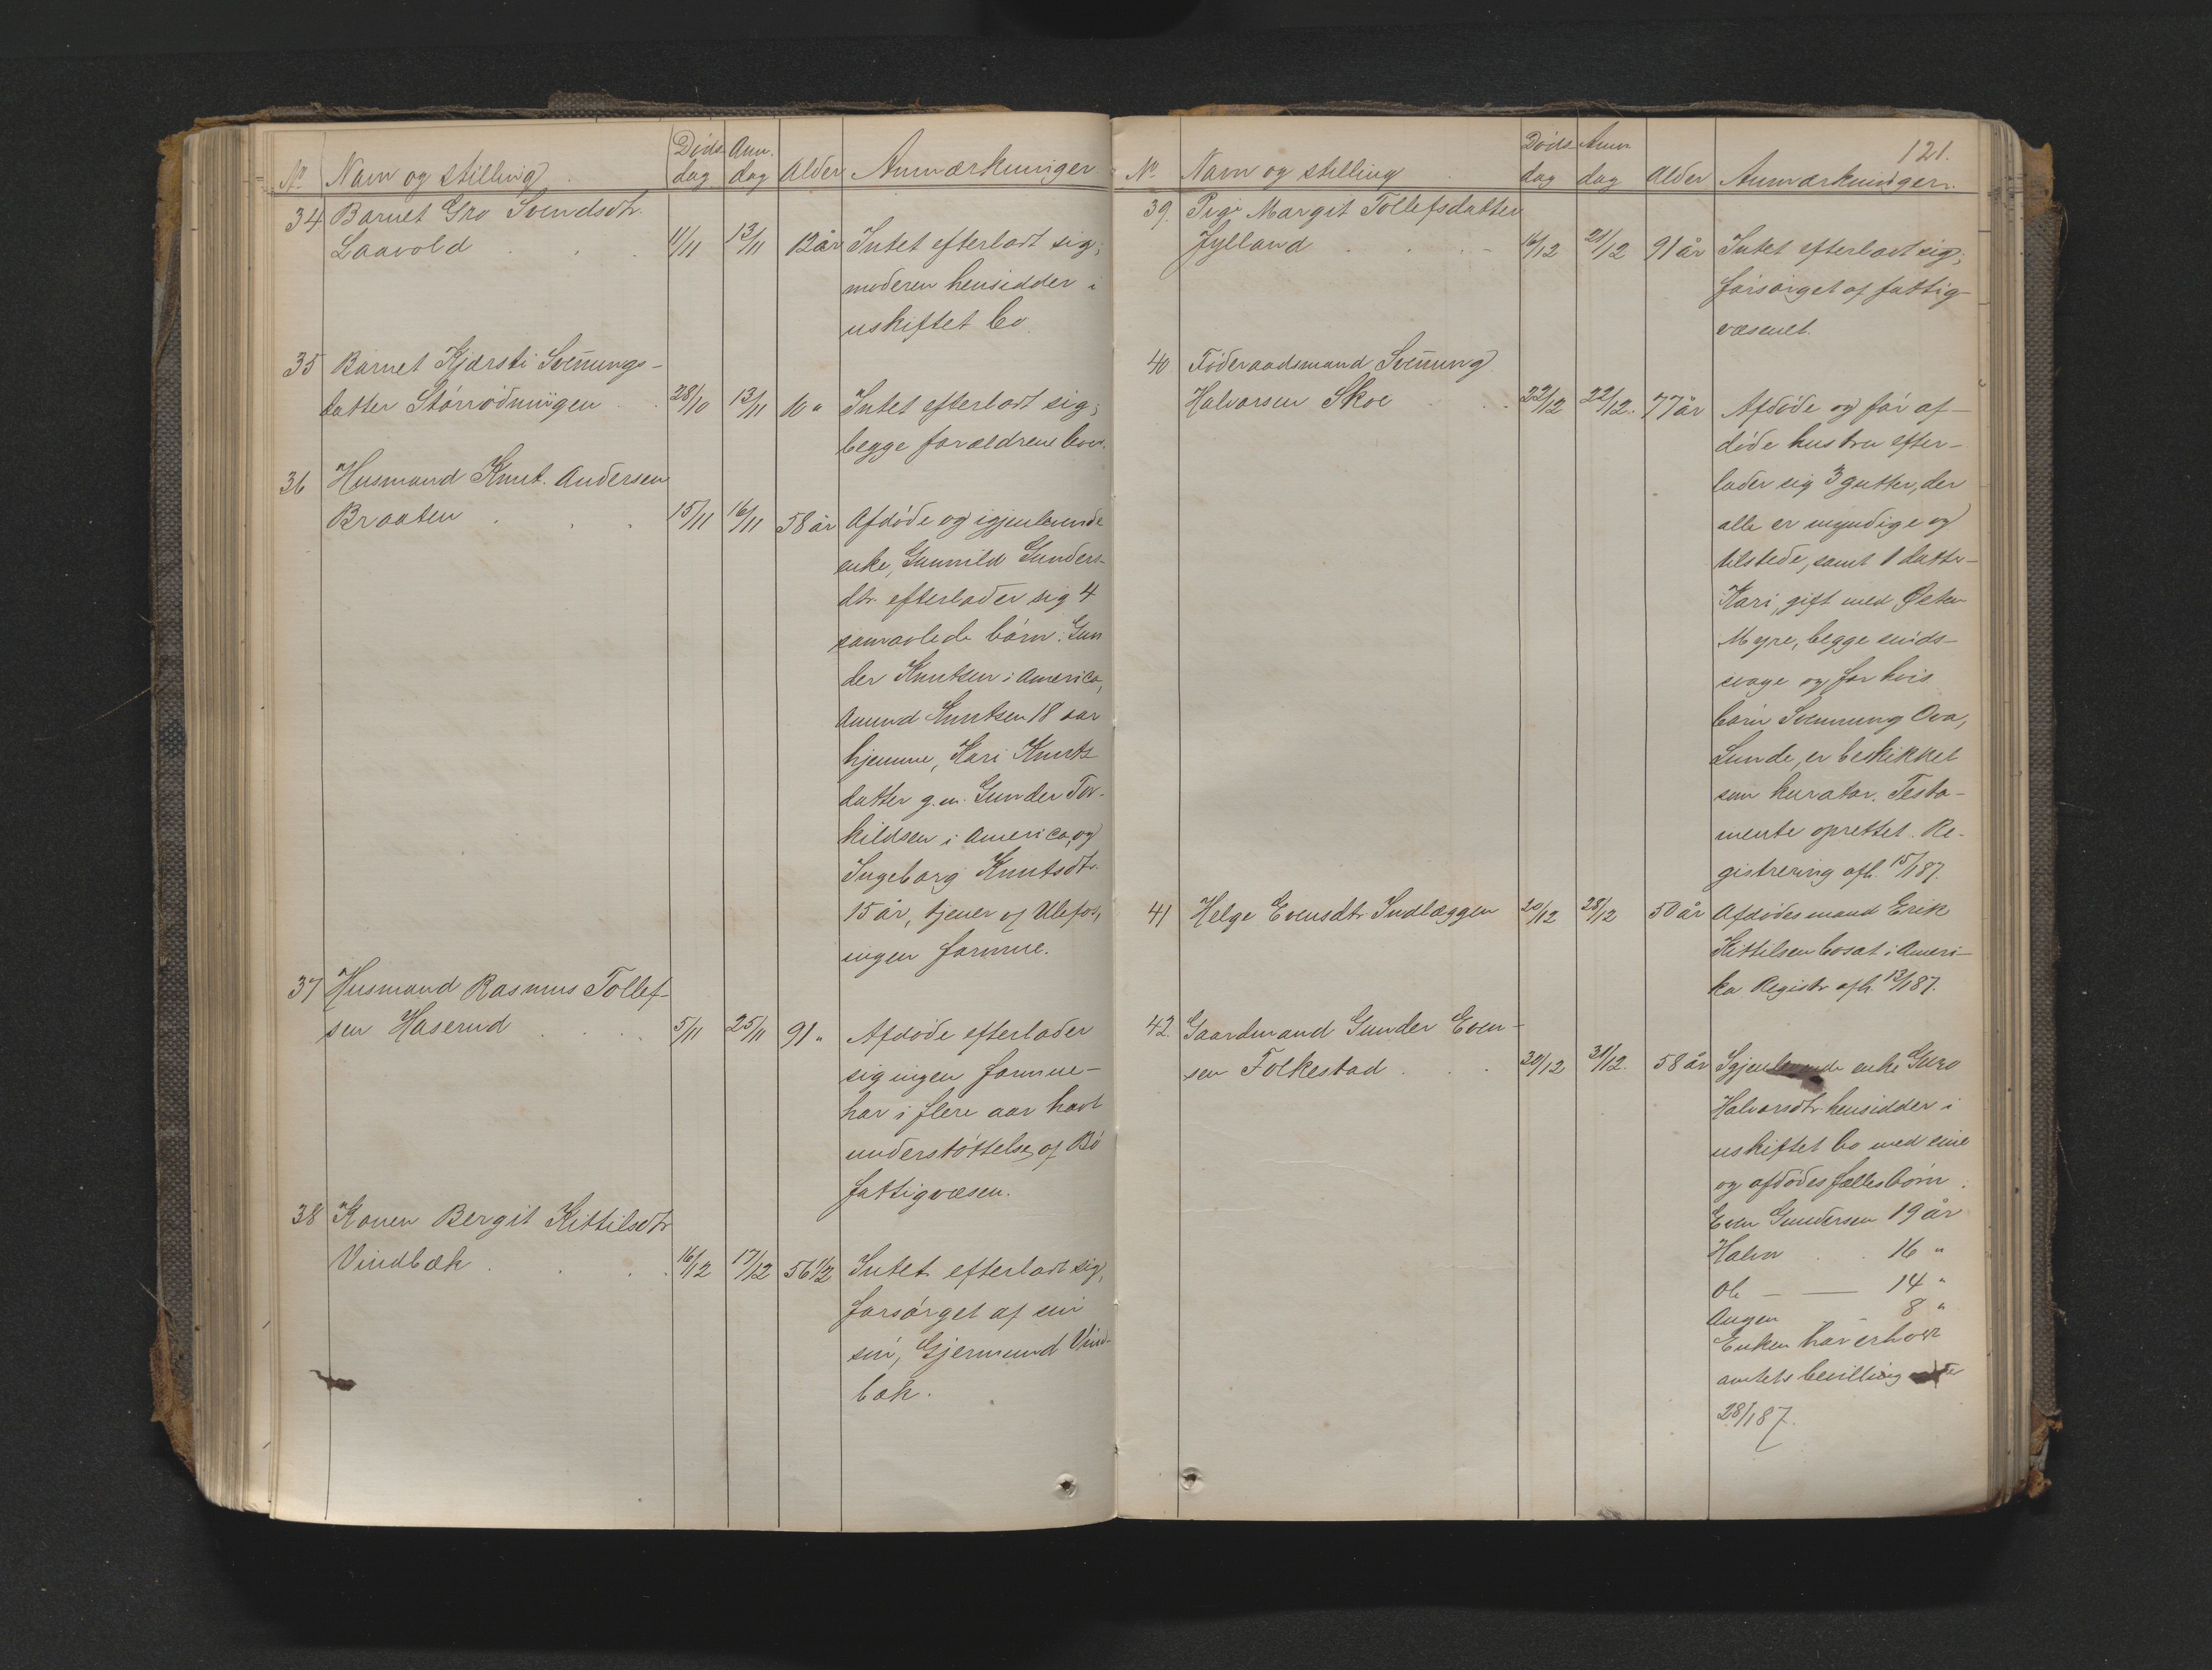 Nº Navn og stilling Døds- dag Anm. dag Alder Anmærkninger
34 Barnet Gro Svendsdtr.
Laavold 11/11 13/11 12 år Intet efterladt sig;
moderen hensidder i
uskiftet bo.
35 Barnet Kjærsti Svennungs-
datter Stórródningen 28/10 13/11 10 " Intet efterladt sig;
begge forældrene lever.
36 Husmand Knut Andersen
Braaten 15/11 16/11 58 år Afdøde og igjenlevende
enke, Gunnild Gunders-
dtr. efterlader sig 4
samavlede børn: Gun
der Knutsen i America,
Amund Knutsen 18 aar
hjemme, Kari Knuts-
datter g. m. Gunder Tor-
kildsen i America, og
Ingeborg Knutsdtr.
15 år, tjener på Ulefos,
ingen formue.
37 Husmand Rasmus Tollef-
sen Haserud 5/11 25/11 91 " Afdøde efterlader
sig ingen formue -
har i flere aar havt
understøttelse af Bø
fattigvæsen.
38 Konen Bergit Kittilsdtr
Vindbæk 16/12 17/12 56 1/2 Intet efterladt sig,
forsørget af sin
søn, Gjermund Vind-
bæk.
121.
Nº Navn og stilling Døds- dag Anm. dag Alder Anmærkninger.
39. Pige Margit Tollefsdatter
Jylland 16/12 21/12 91 år Intet efterladt sig;
forsørget af fattig-
væsenet.
40 Føderaadsmand Svennung
Halvorsen Skoe 22/12 22/12. 77 år Afdøde og før af-
døde hustru efter-
lader sig 3 gutter, der
alle er myndige og
tilstede, samt 1 datter-
Kari, gift med Østen
Myre, begge sinds-
svage og for hvis
børn Svennung Ova,
Lunde, er beskikket
som kurator. Testa-
mente oprettet. Re-
gistrering afh. 15/1 87.
41 Helge Evensdtr. Indlæggen 20/12 28/12 50 år Afdødes mand Erik
Kittilsen bosat i Ameri-
ka Registr. afh. 13/1 87.
42. Gaardmand Gunder Even-
sen Folkestad 30/12 31/12. 58 år Igjenlevende enke Guro
Halvorsdtr. hensidder i
uskiftet bo med sine
og afdødes fællesbørn.
Even Gundersen 19 år
Halvor 16 "
Ole — — 14 "
Aagen 8 "
Enken har erholdt
amtets bevilling
28/1 87.